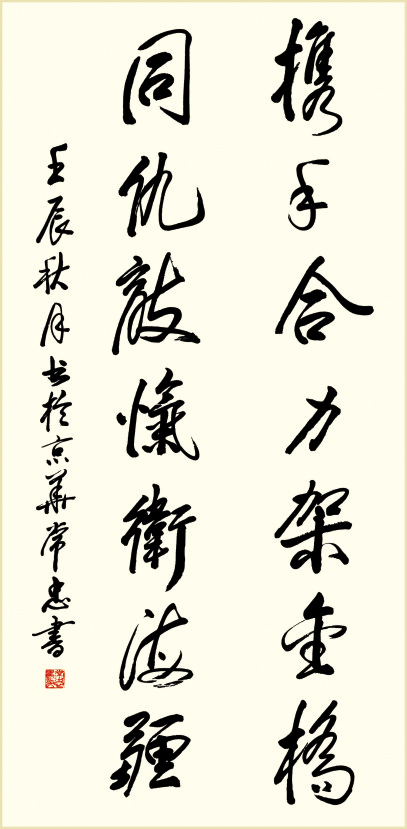 携手合力架金橋
同仇敵愾衛海疆
壬辰秋月书於京華常忠書